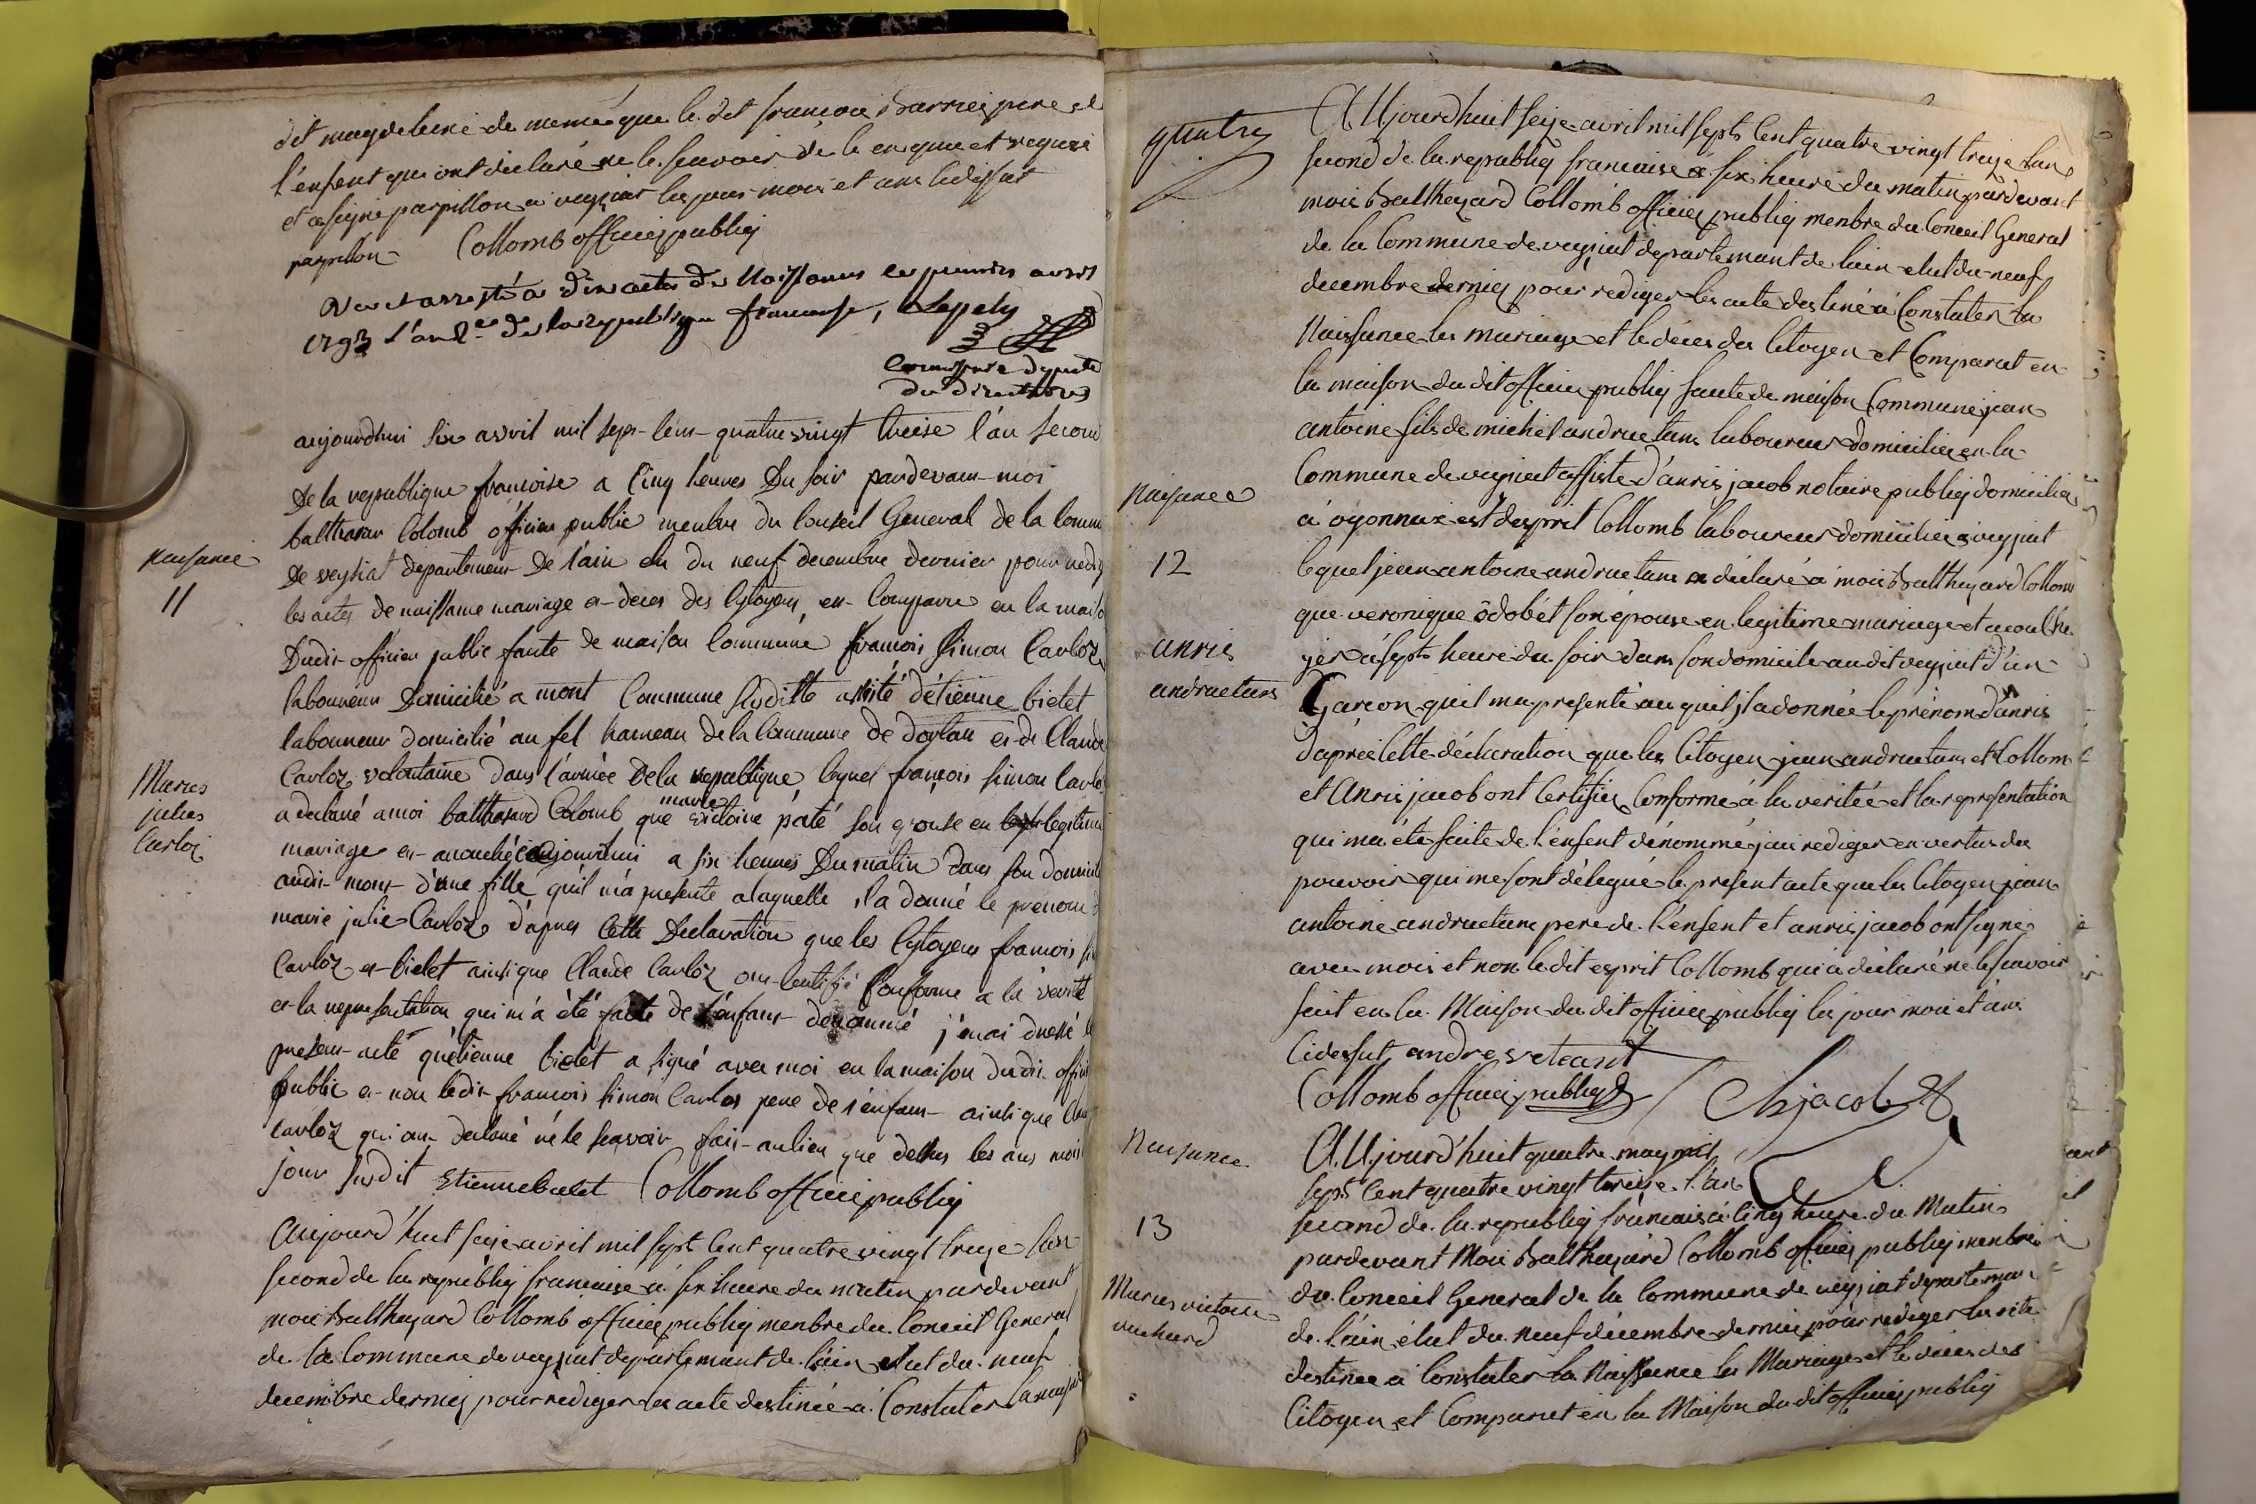 dit magdeleine de meme que le dit francois Barrieq pere de
l'enfent qui ont déclaré ne le scavoir de le enquis et requis
et a signé parpillon a veyziat les jour mois et ans cidessut
parpillon Collomb officieq publiq
Vu et arresté a dix actes de Naissances le premier avril
1793 l'an 2e de la republique francoise,
commissaire deputé
du directoire
aujourdhui six avril mil sept-cent-quatre vingt treise l'an second
De la republique francoise a Cinq heures Du soir pardevant-moi
balthasar Colomb officier public menbre du Conseil General de la Commu
naissance
De veyziat departement De l'ain elu du neuf decembre dernier pour redig
11
les actes de naissance mariage et deces des Citoyens, est Comparu en la maiso
Dudit officier public faute de maison Commune francois Simon Carloz
laboureur Domicilié a mont Commune Suditte assité d'étienne bielet
laboureur domicilié au fel hameau de la Commune de dortan et de Claude
Maries
julies
Carloz
Carloz volontaire Dans l'armée De la republique, lequel francois Simon Carlo
a declaré a moi balthasard Colomb que marie victoire paté son epouse en legitime
mariage est acouché aujourdhui a six heures Du matin Dans son domicile
audit mont d'une fille, qu'il m'a presente a laquelle il a donné le prenom d
marie julie Carloz d'apres Cette Declaration que les Citoyens francois si
Carloz et bielet ainsi que Claude Carloz ont Certifié Conforme a la verité
et la representation qui m'a été faite de l'enfant denommé j'en ai dressé le
present acte qu'étienne bielet a signé avec moi en la maison dudit offici
public et non ledit francois simon Carlos pere de l'enfant ainsi que Clau
Carloz qui ont declaré ne le scavoir fait au lieu que dessus les ans mois
jour susdit Etienne bielet Collomb officieq publiq
Aujourd'huit seize avril mil sept Cent quatre vingt treize l'an
second de la républiq francaise a six heure du matin pardevant
moi Balthazard Collomb officieq publiq menbre du Conceil General
de la Commune de veyziat departemant de l'ain elut du neuf
decembre dernieq pour rediger les acte destinée à Constater la naissa
AUjourd'huit seize avril mil sept Cent quatre vingt treize l'an
second de la republiq francaise a six heure du matin pardevant
mois Balthezard Collomb officieq publiq menbre du Conceil General
de la Commune de veyziat departemant de l'ain elut du neuf
decembre dernieq pour rediger les acte destiné a Constater la
Naissance les mariage et le déces des Citoyen et Comparut en
la maison du dit officieq publiq faute de maison Commune jean
antoine fils de michel andruetans laboureur domicilié en la
Commune de veyziat assiste d'anris jacob notaire publiq domicilié
Naisance
à oyonnaz est d'esprit Collomb laboureur domicilié a veyziat
12
lequel jean antoine andruetans a déclaré a mois Balthezard Collom
que veronique odobét son épouse en legitime mariage et acouche
anris
andruetans
yer a septs heure du soir dans son domicile audit veyziat d'un
Garcon qu'il ma presenté au quel il a donnée le prénom d'anris
d'aprèe Cette déclaration que les Citoyen jean andruetans et Collom
et Anris jacob ont Certifier Conforme à la veritée et la representation
qui ma été faite de l'enfent dénommé j'ai rediger en vertus des
pouvoir qui me sont délegué le present acte que les Citoyen jean
antoine andruetans pere de l'enfent et anris jacob ont signé
avec mois et non le dit esprit Collomb qui a déclaré ne le scavoir
fait en la Maison du dit officieq publiq les jour mois et ans
Cidessut
Collomb officieq publiq jacob
Naisance
AUjourd'huit quatre may mil
septs Cent quatre vingt treize l'an
13
second de la republiq francaise à Cinq heure du Matin
pardevant Mois Balthazard Collomb officieq publiq menbre
Maries victoire
du Conceil General de la Commune de veyziat departeman
de l'ain élut du neuf décembre dernieq pour rediger les acte
destinee a Constater la Naissance les Mariage et le déces des
Citoyen et Comparut en la Maison du dit officieq publiq